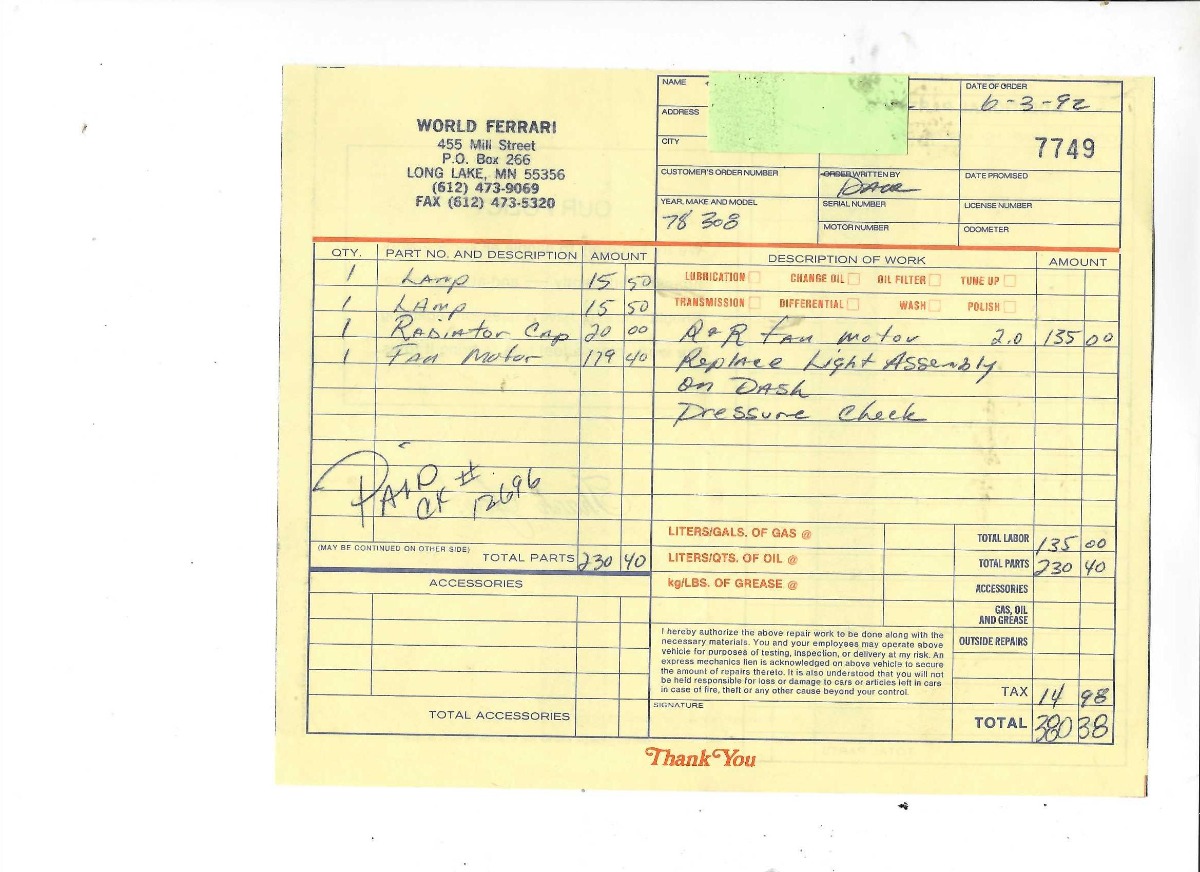 WORLD FERRARI
455 Mill Street
P.O. Box 266
LONG LAKE, MN 55356
(612) 473-9069
FAX (612) 473-5320
NAME
ADDRESS
CITY
DATE OF ORDER
6-3-92
7749
CUSTOMER'S ORDER NUMBER
ORDER WRITTEN BY
Dave
DATE PROMISED
YEAR, MAKE AND MODEL
78 308
SERIAL NUMBER
LICENSE NUMBER
MOTOR NUMBER
ODOMETER
QTY. PART NO. AND DESCRIPTION AMOUNT
1 Lamp 15 50
1 LAmp 15 50
1 Radiator Cap 20 00
1 Fan Motor 179 40
PAID
CK # 12696
(MAY BE CONTINUED ON OTHER SIDE) TOTAL PARTS 230 40
ACCESSORIES
TOTAL ACCESSORIES
DESCRIPTION OF WORK AMOUNT
LUBRICATION CHANGE OIL OIL FILTER TUNE UP
TRANSMISSION DIFFERENTIAL WASH POLISH
R&R fan motor 2.0 135 00
Replace Light Assembly
on Dash
Pressure Check
LITERS/GALS. OF GAS @
LITERS/QTS. OF OIL @
kg/LBS. OF GREASE @
TOTAL LABOR 135 00
TOTAL PARTS 230 40
ACCESSORIES
GAS, OIL
AND GREASE
OUTSIDE REPAIRS
TAX 14 98
TOTAL 380 38
I hereby authorize the above repair work to be done along with the
necessary materials. You and your employees may operate above
vehicle for purposes of testing, inspection, or delivery at my risk. An
express mechanics lien is acknowledged on above vehicle to secure
the amount of repairs thereto. It is also understood that you will not
be held responsible for loss or damage to cars or articles left in cars
in case of fire, theft or any other cause beyond your control.
SIGNATURE
Thank You